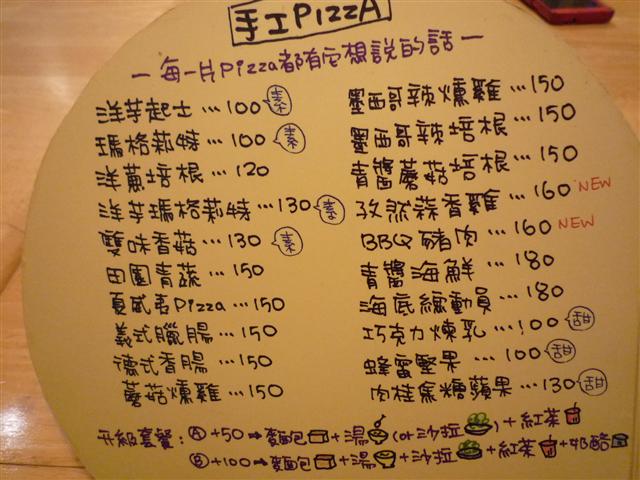 手工PIZZA
一 每一片Pizza都有它想說的話 一
洋芋起士…100 素
瑪格莉特…100 素
洋蔥培根…120
洋芋瑪格莉特…130 素
雙味香菇…130 素
田園青蔬…150
夏威夷Pizza…150
義式臘腸…150
德式香腸…150
蘑菇燻雞…150
墨西哥辣燻雞…150
墨西哥辣培根…150
青醬蘑菇培根…150
孜然蒜香雞…160 NEW
BBQ豬肉…160 NEW
青醬海鮮…180
海底總動員…180
巧克力煉乳…100 甜
蜂蜜堅果…100 甜
肉桂焦糖蘋果…130 甜
升級套餐:Ⓐ+50→麵包+湯(or沙拉)+紅茶
Ⓑ+100→麵包+湯+沙拉+紅茶+奶酪